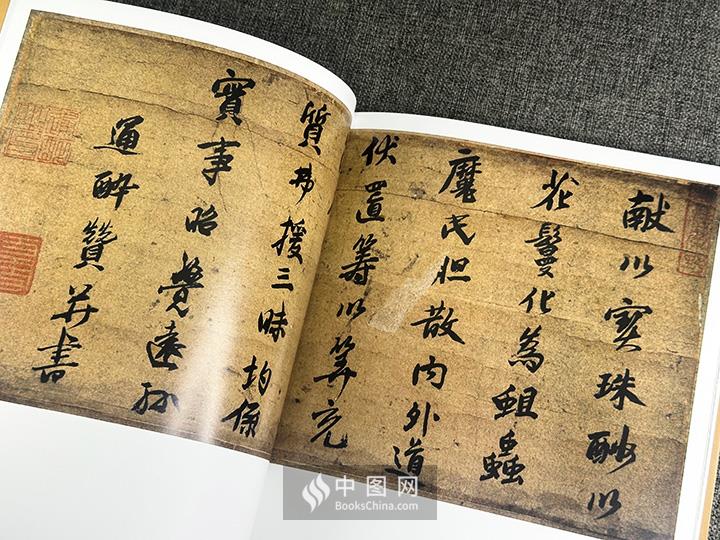 献以寶珠酬以
花鬘化為蛆蟲
魔民胆散内外道
伏置籌以筭充
質弗援三昧均係
實事昭覺遠孫
通酔贊并書
中图网
BooksChina.com